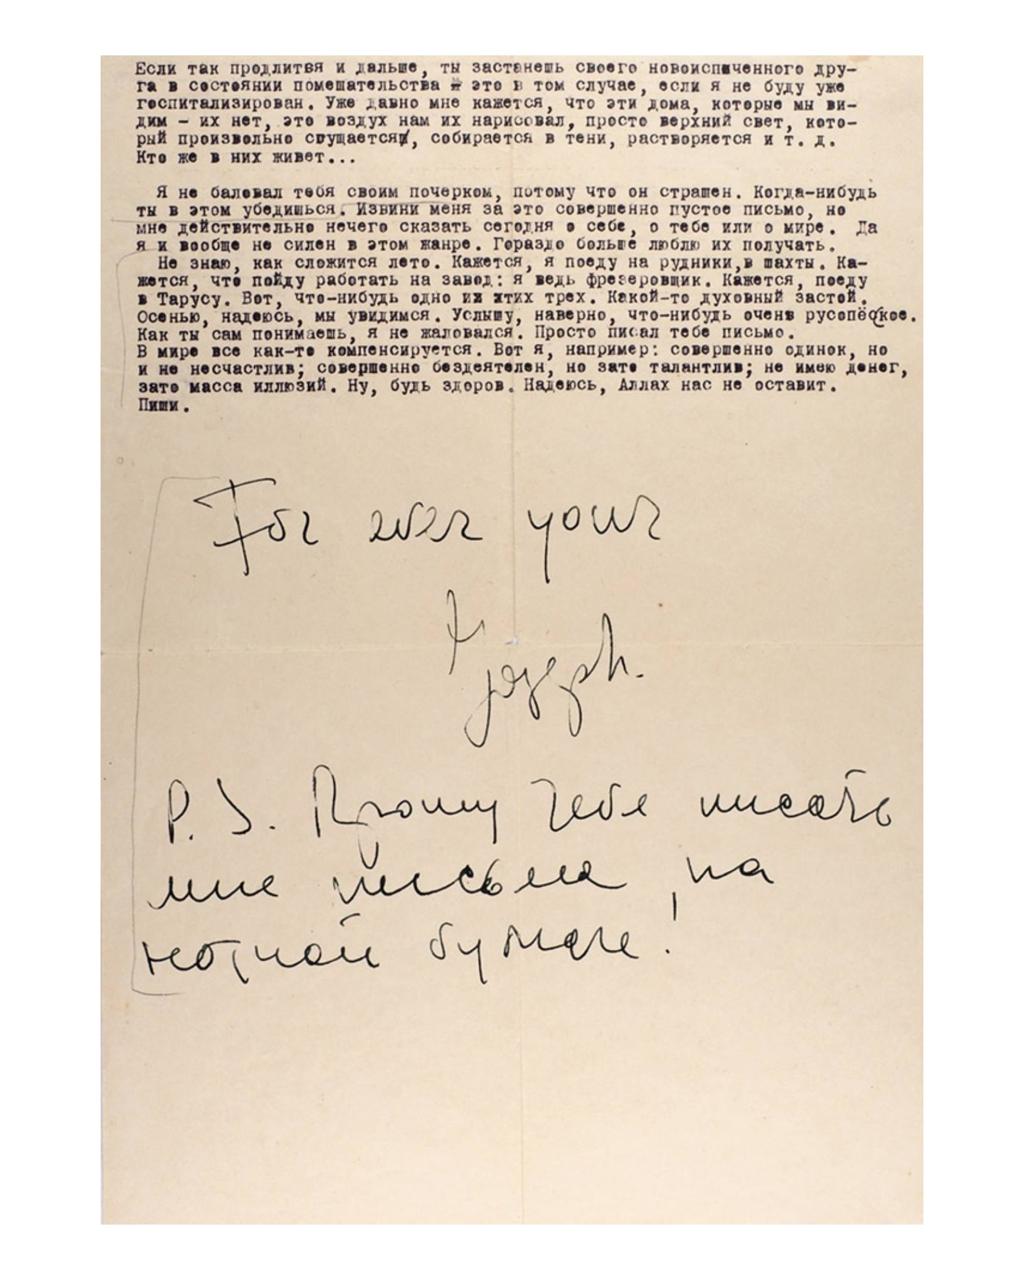 Если так продлитвя и дальше, ты застанешь своего новоиспеченного дру-
га в состоянии помешательства это в том случае, если я не буду уже
госпитализирован. Уже давно мне кажется, что эти дома, которые мы ви-
дим - их нет, это воздух нам их нарисовал, просто верхний свет, кото-
рый произвольно сгущается, собирается в тени, растворяется и т. д.
Кто же в них живет...
Я не баловал тебя своим почерком, потому что он страшен. Когда-нибудь
ты в этом убедишься. Извини меня за это совершенно пустое письмо, но
мне действительно нечего сказать сегодня о себе, о тебе или о мире. Да
я и вообще не силен в этом жанре. Гораздо больше люблю их получать.
Не знаю, как сложится лето. Кажется, я поеду на рудники, в шахты. Ка-
жется, что пойду работать на завод: я ведь фрезеровщик. Кажется, поеду
в Тарусу. Вот, что-нибудь одно из этих трех. Какой-то духовный застой.
Осенью, надеюсь, мы увидимся. Услышу, наверно, что-нибудь очень
Как ты сам понимаешь, я не жаловался. Просто писал тебе письмо.
В мире все как-то компенсируется. Вот я, например: совершенно одинок, но
и не несчастлив; совершенно бездеятелен, но зато талантлив; не имею денег,
зато масса иллюзий. Ну, будь здоров. Надеюсь, Аллах нас не оставит.
Пиши.
For ever your
Joseph.
P.S. Прошу тебя писать
мне письма на
нотной бумаге!